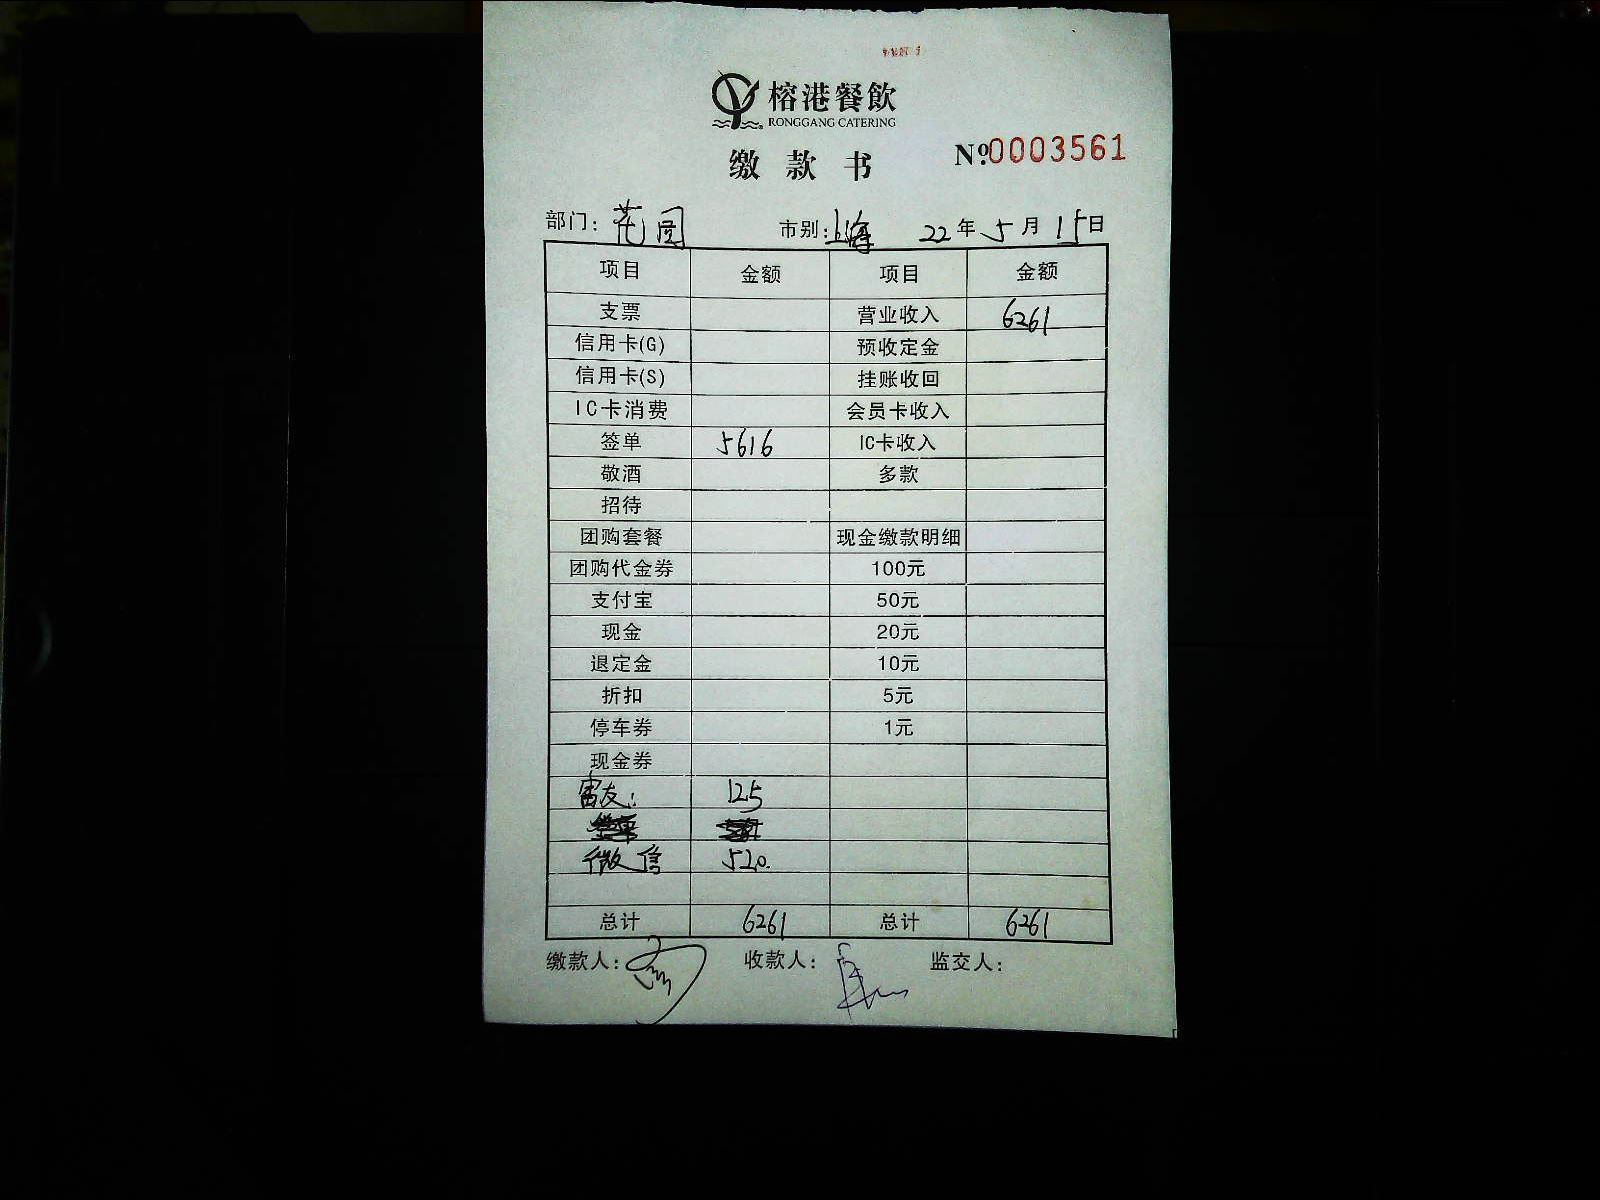 榕港餐飲
RONGGANG CATERING
缴款书
№0003561
部门：花园 市别：上海 22年5月15日
项目 金额 项目 金额
支票 营业收入 6261
信用卡(G) 预收定金
信用卡(S) 挂账收回
IC卡消费 会员卡收入
签单 5616 IC卡收入
敬酒 多款
招待
团购套餐 现金缴款明细
团购代金券 100元
支付宝 50元
现金 20元
退定金 10元
折扣 5元
停车券 1元
现金券
友： 125
微信 520.
总计 6261 总计 6261
缴款人： 收款人： 监交人：